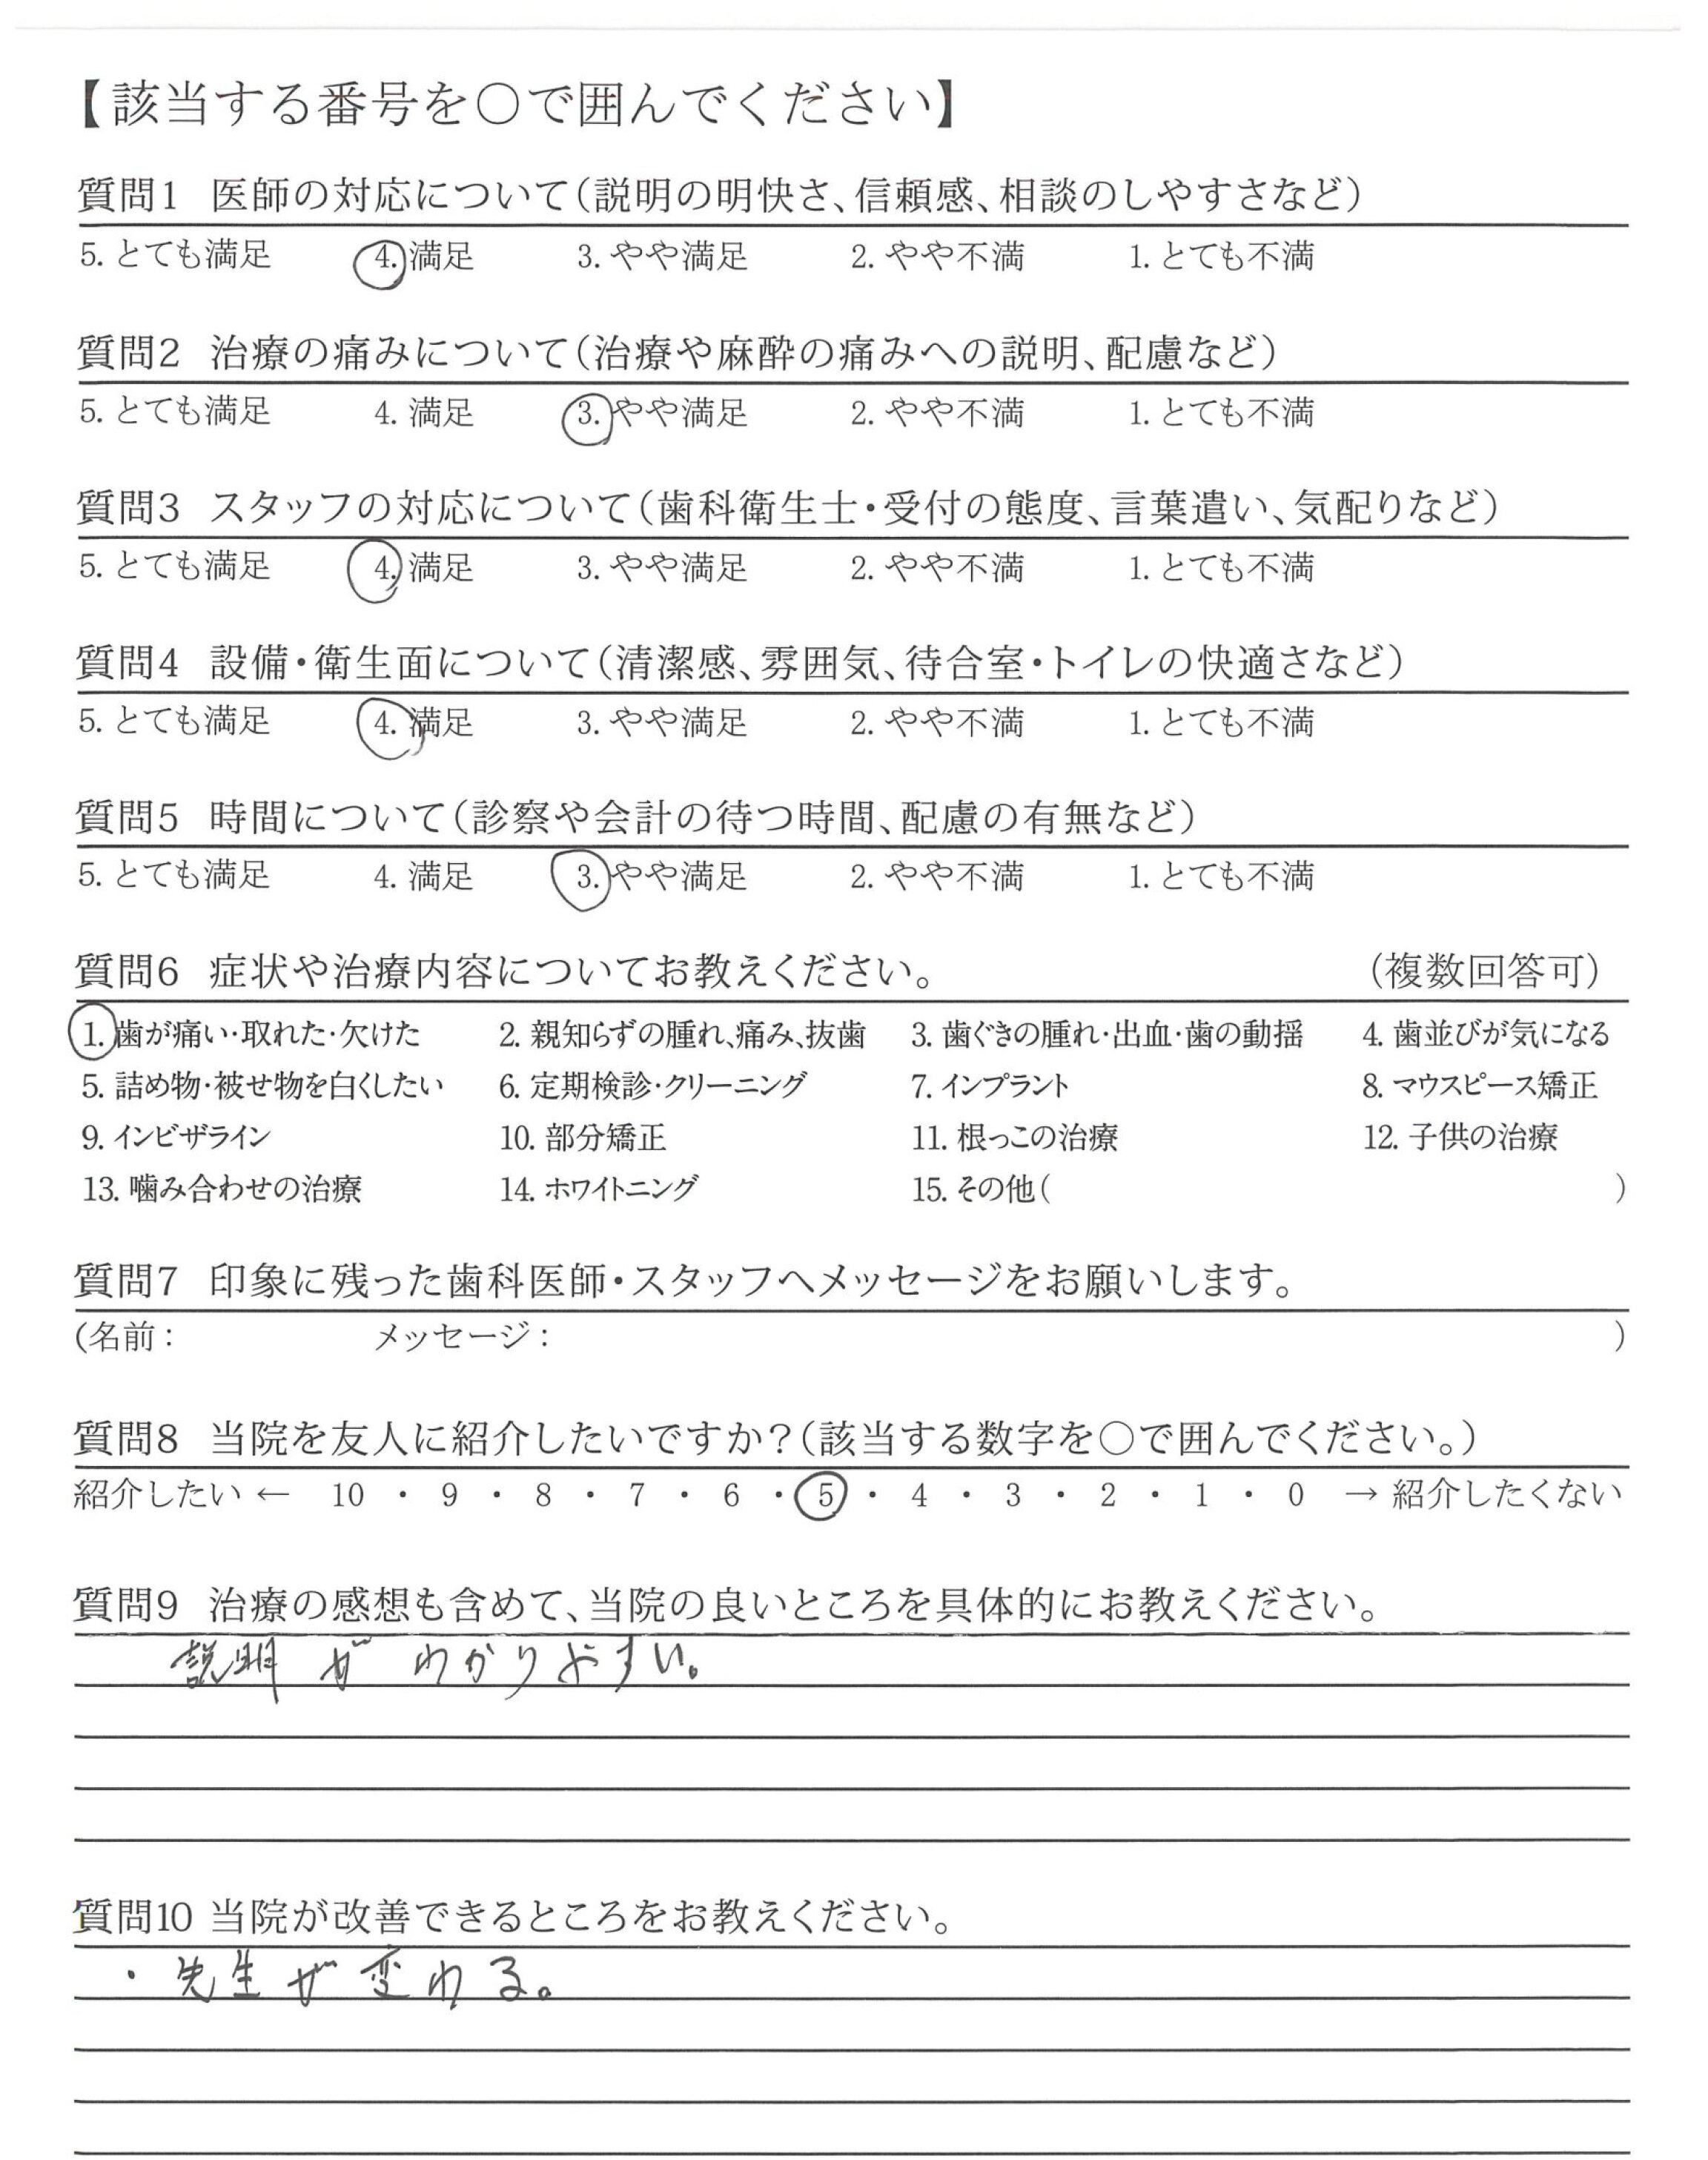 【該当する番号を○で囲んでください】
質問1 医師の対応について(説明の明快さ、信頼感、相談のしやすさなど)
5. とても満足 4. 満足 3. やや満足 2. やや不満 1. とても不満
質問2 治療の痛みについて(治療や麻酔の痛みへの説明、配慮など)
5. とても満足 4. 満足 3. やや満足 2. やや不満 1. とても不満
質問3 スタッフの対応について(歯科衛生士・受付の態度、言葉遣い、気配りなど)
5. とても満足 4. 満足 3. やや満足 2. やや不満 1. とても不満
質問4 設備・衛生面について(清潔感、雰囲気、待合室・トイレの快適さなど)
5. とても満足 4. 満足 3. やや満足 2. やや不満 1. とても不満
質問5 時間について(診察や会計の待つ時間、配慮の有無など)
5. とても満足 4. 満足 3. やや満足 2. やや不満 1. とても不満
質問6 症状や治療内容についてお教えください。 (複数回答可)
1. 歯が痛い・取れた・欠けた 2. 親知らずの腫れ、痛み、抜歯 3. 歯ぐきの腫れ・出血・歯の動揺 4. 歯並びが気になる
5. 詰め物・被せ物を白くしたい 6. 定期検診・クリーニング 7. インプラント 8. マウスピース矯正
9. インビザライン 10. 部分矯正 11. 根っこの治療 12. 子供の治療
13. 噛み合わせの治療 14. ホワイトニング 15. その他( )
質問7 印象に残った歯科医師・スタッフへメッセージをお願いします。
(名前: メッセージ: )
質問8 当院を友人に紹介したいですか?(該当する数字を○で囲んでください。)
紹介したい ← 10 ・ 9 ・ 8 ・ 7 ・ 6 ・ 5 ・ 4 ・ 3 ・ 2 ・ 1 ・ 0 → 紹介したくない
質問9 治療の感想も含めて、当院の良いところを具体的にお教えください。
説明がわかりやすい。
質問10 当院が改善できるところをお教えください。
・先生が変わる。